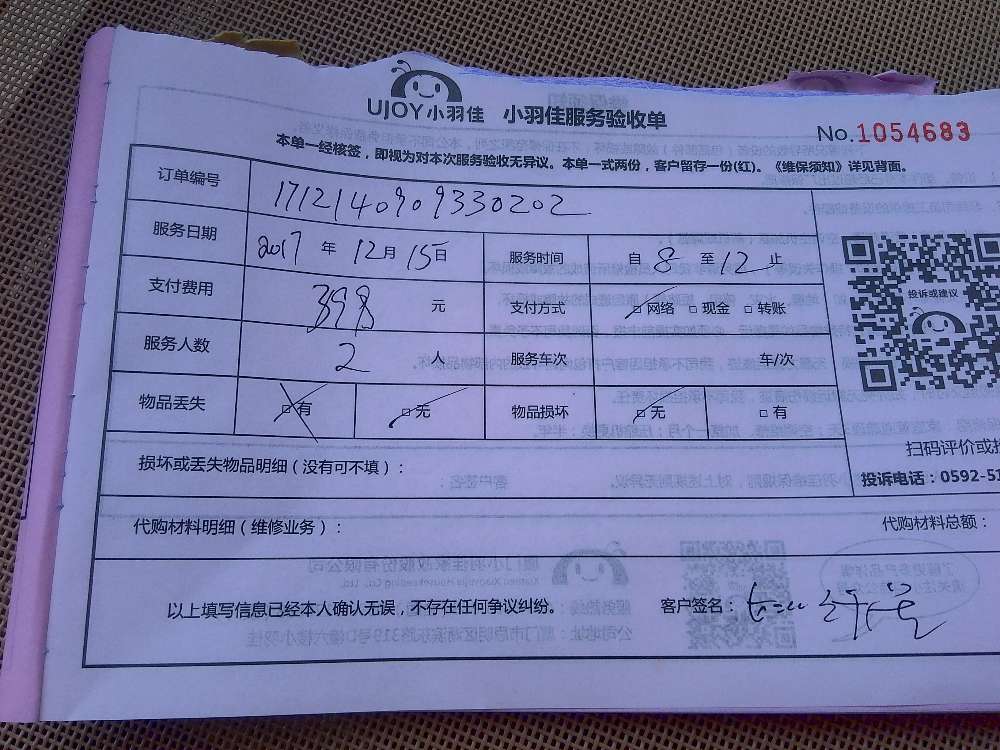 UJOY小羽佳 小羽佳服务验收单
No.1054683
本单一经核签，即视为对本次服务验收无异议。本单一式两份，客户留存一份(红)。《维保须知》详见背面。
订单编号 1712140909330202
服务日期 2017 年 12月 15日 服务时间 自 8 至 12 止
支付费用 398 元 支付方式 □网络 □现金 □转账
服务人数 2 人 服务车次 车/次
物品丢失 □有 □无 物品损坏 □无 □有
投诉或建议
扫码评价或
损坏或丢失物品明细（没有可不填）：
投诉电话：0592-51
代购材料明细（维修业务）： 代购材料总额：
以上填写信息已经本人确认无误，不存在任何争议纠纷。 客户签名：